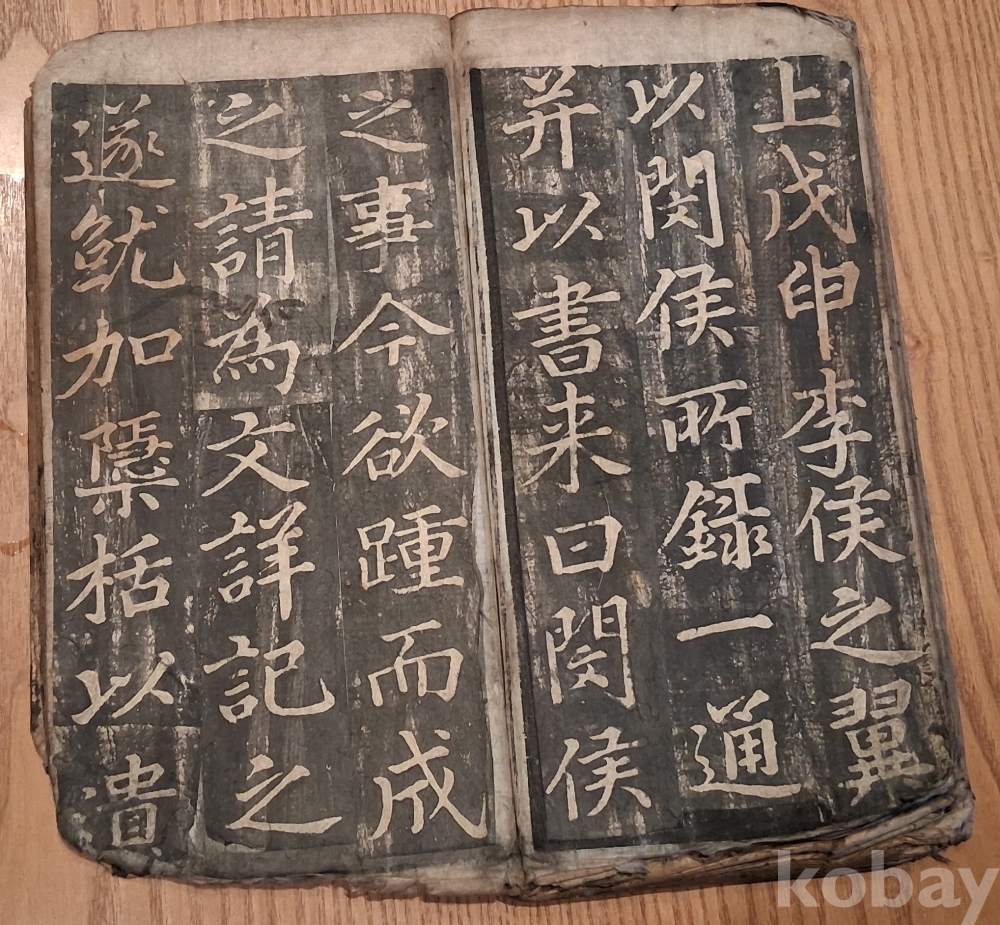 上戊申李侯之翼
以閔侯所録一通
并以書来曰閔侯
之事今欲踵而成
之請為文詳記之
遂就加櫽栝以遺
kobay